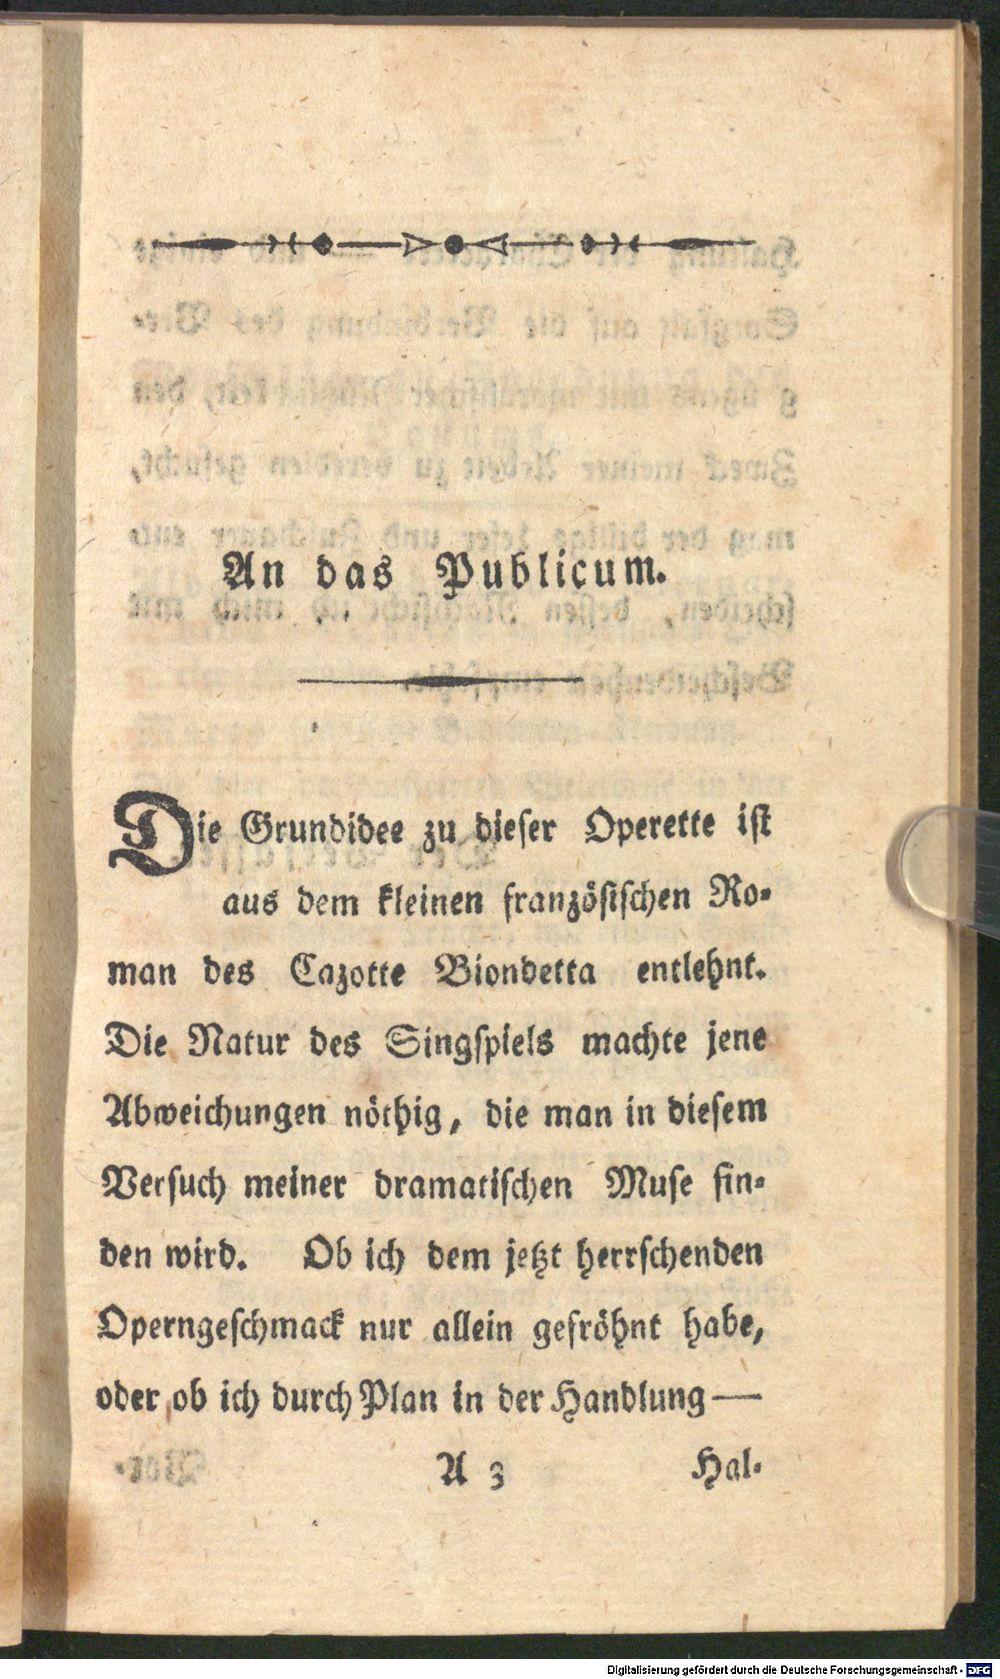 An das Publicum.
Die Grundidee zu dieser Operette ist
aus dem kleinen französischen Ro-
man des Cazotte Biondetta entlehnt.
Die Natur des Singspiels machte jene
Abweichungen nöthig, die man in diesem
Versuch meiner dramatischen Muse fin-
den wird. Ob ich dem jetzt herrschenden
Operngeschmack nur allein gefröhnt habe,
oder ob ich durch Plan in der Handlung —
A 3 Hal-
Digitalisierung gefördert durch die Deutsche Forschungsgemeinschaft - DFG